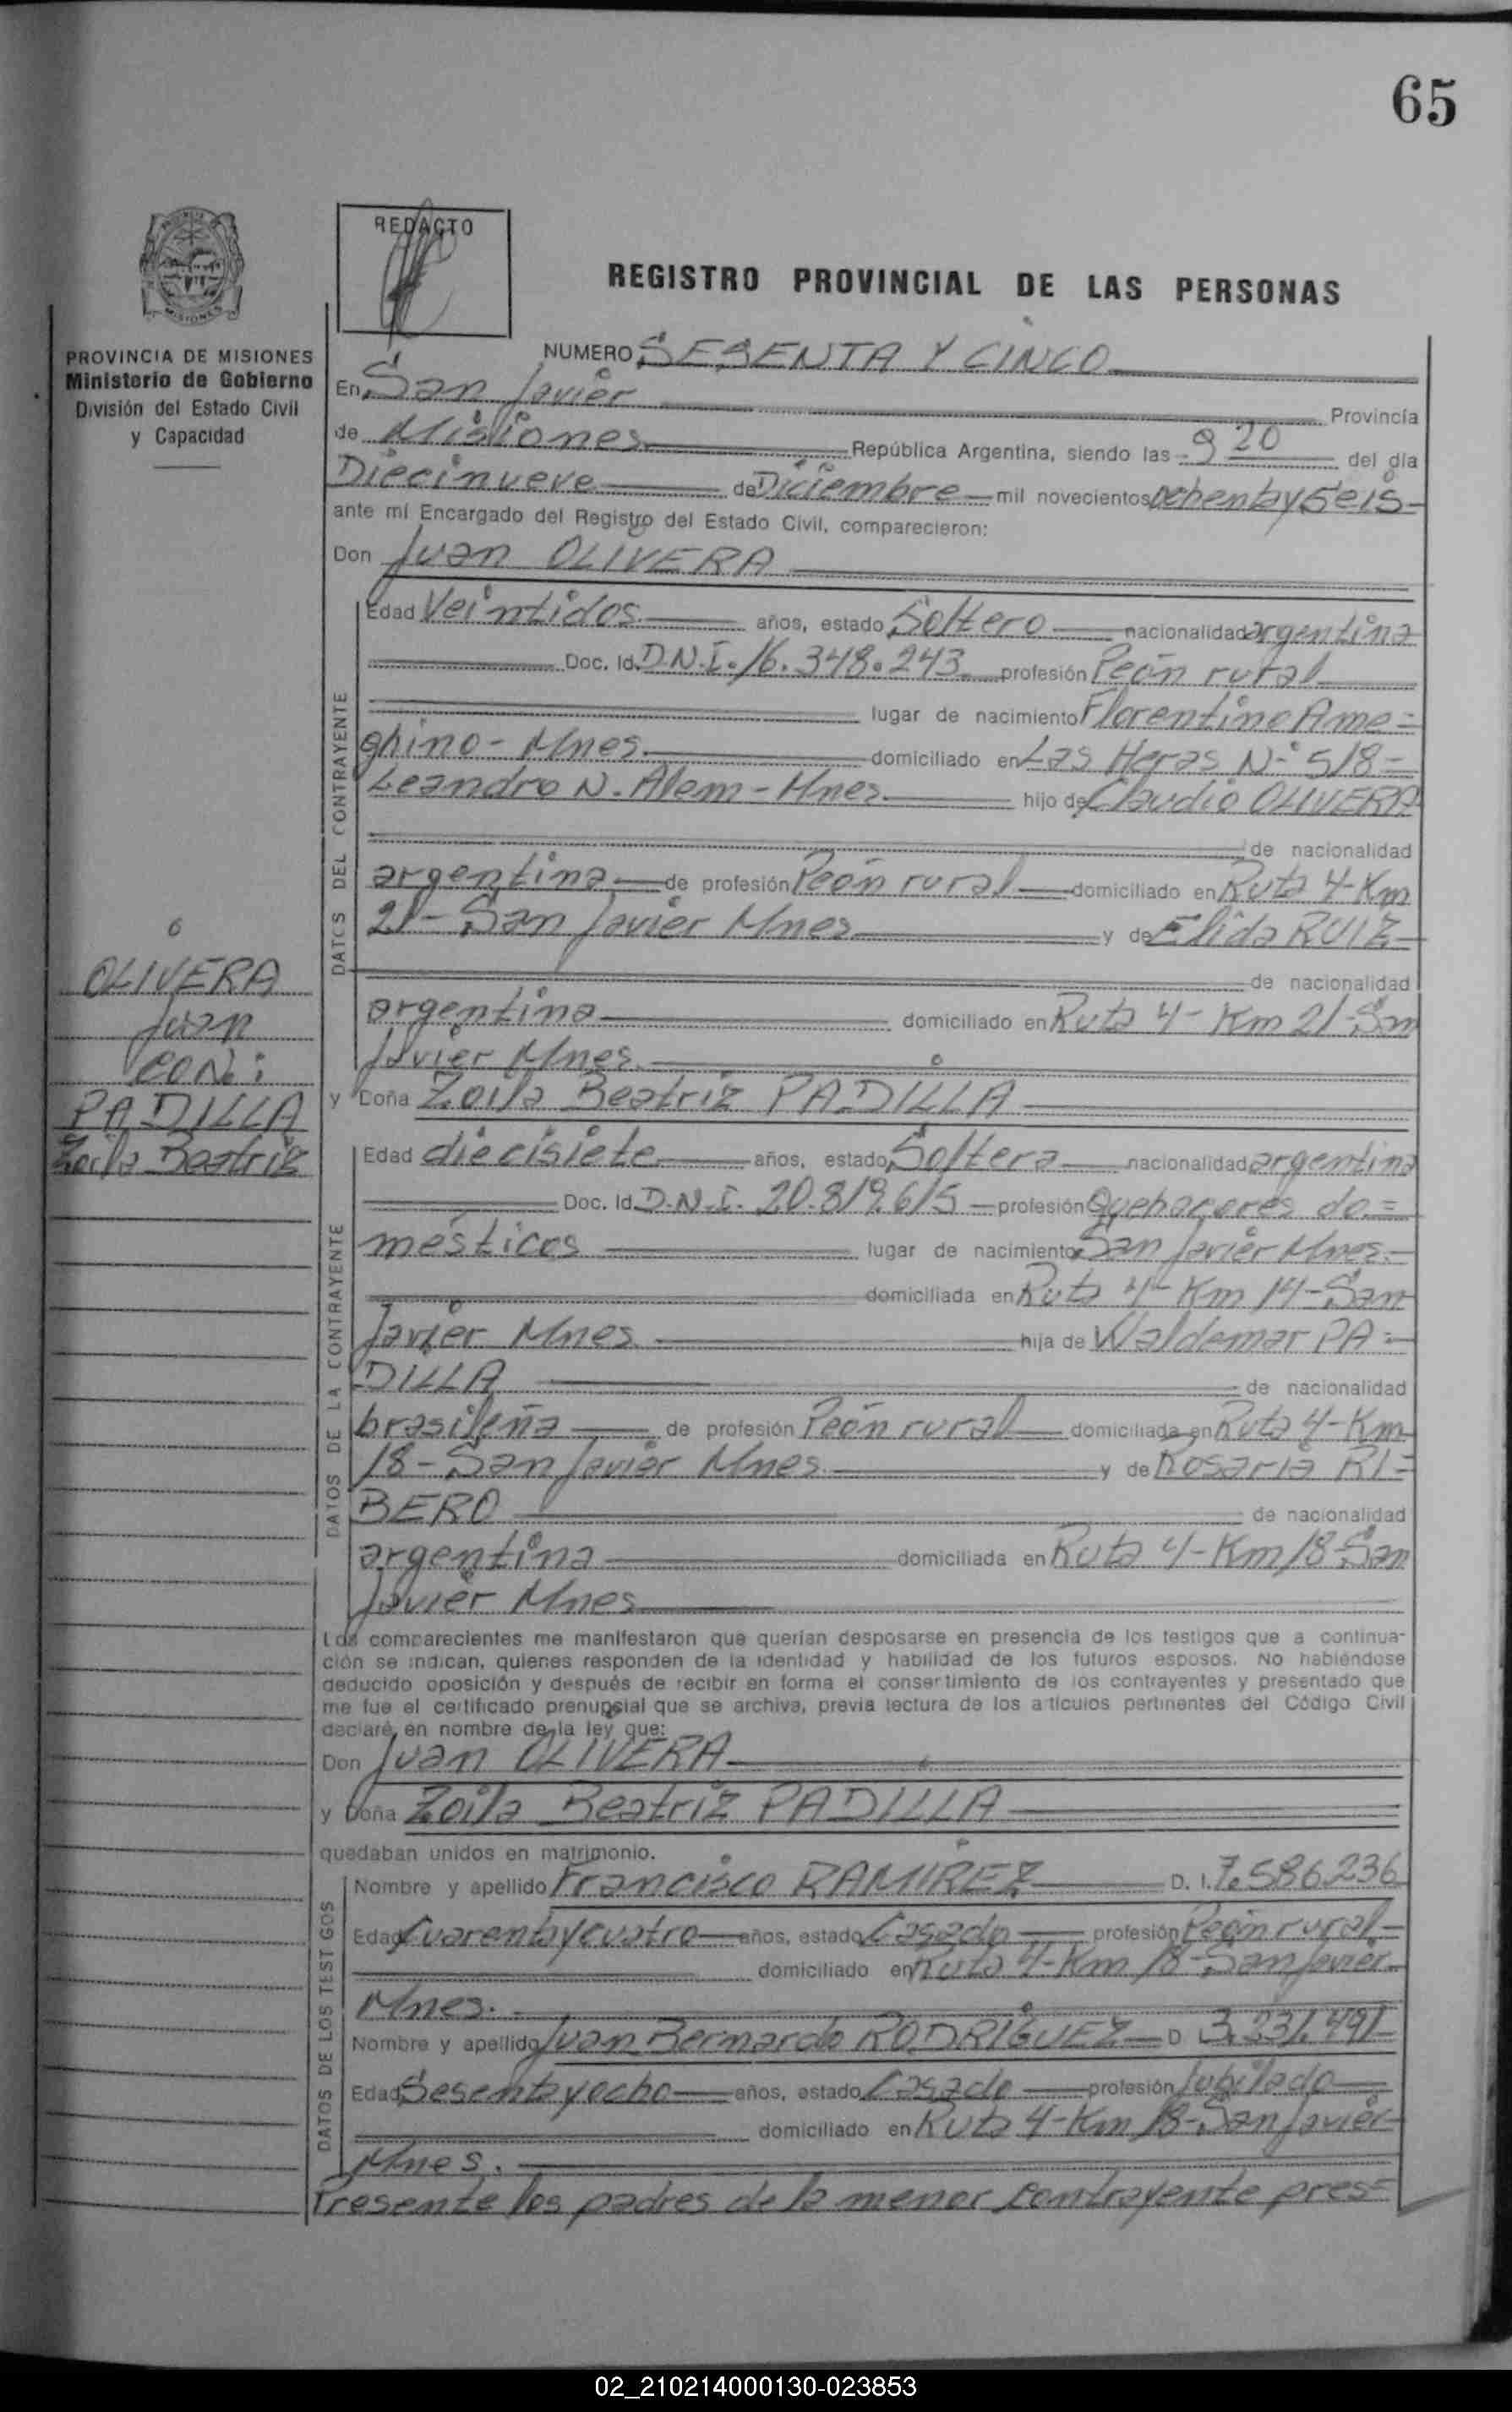 65
REDACTO
REGISTRO PROVINCIAL DE LAS PERSONAS
PROVINCIA DE MISIONES
Ministerio de Gobierno
División del Estado Civil
y Capacidad
OLIVERA
Juan
CON:
PADILLA
Zoila Beatriz
NUMERO SESENTA Y CINCO
En San Javier Provincia
de Misiones República Argentina, siendo las 9 20 del día
Diecinueve de Diciembre mil novecientos ochenta y seis
ante mí Encargado del Registro del Estado Civil, comparecieron:
Don Juan OLIVERA
DATOS DEL CONTRAYENTE
Edad Veintidos años, estado Soltero nacionalidad argentina
Doc. Id. D.N.I. 16.348.243 profesión Peón rural
lugar de nacimiento Florentino Ame=
ghino - Mnes. domiciliado en Las Heras N° 518-
Leandro N. Alem - Mnes hijo de Claudio OLIVERA
de nacionalidad
argentina de profesión Peón rural domiciliado en Ruta 4-Km
21- San Javier Mnes y de Elida RUIZ
de nacionalidad
argentina domiciliado en Ruta 4- Km 21-San
Javier Mnes.
y Doña Zoila Beatriz PADILLA
DATOS DE LA CONTRAYENTE
Edad diecisiete años, estado Soltera nacionalidad argentina
Doc. Id. D.N.I. 20.819.615 profesión Quehaceres do=
mésticos lugar de nacimiento San Javier Mnes.
domiciliada en Ruta 4- Km 14-San
Javier Mnes hija de Waldemar PA=
DILLA de nacionalidad
brasileña de profesión Peón rural domiciliada en Ruta 4-Km
18- San Javier Mnes y de Rosaria RI=
BERO de nacionalidad
argentina domiciliada en Ruta 4-Km 18-San
Javier Mnes
Los comparecientes me manifestaron que querían desposarse en presencia de los testigos que a continua-
ción se indican, quienes responden de la identidad y habilidad de los futuros esposos. No habiéndose
deducido oposición y después de recibir en forma el consertimiento de los contrayentes y presentado que
me fue el certificado prenupcial que se archiva, previa lectura de los artículos pertinentes del Código Civil
declaré, en nombre de la ley que:
Don Juan OLIVERA
y Doña Zoila Beatriz PADILLA
quedaban unidos en matrimonio.
DATOS DE LOS TESTIGOS
Nombre y apellido Francisco RAMIREZ D. I. 7.586.236
Edad Cuarenta y cuatro años, estado Casado profesión Peón rural
domiciliado en Ruta 4-Km 18-San Javier
Mnes.
Nombre y apellido Juan Bernardo RODRIGUEZ D 3.231.491
Edad Sesenta y ocho años, estado Casado profesión Jubilado
domiciliado en Ruta 4-Km 18-San Javier
Mnes.
Presente los padres de la menor contrayente pres=
02_210214000130-023853